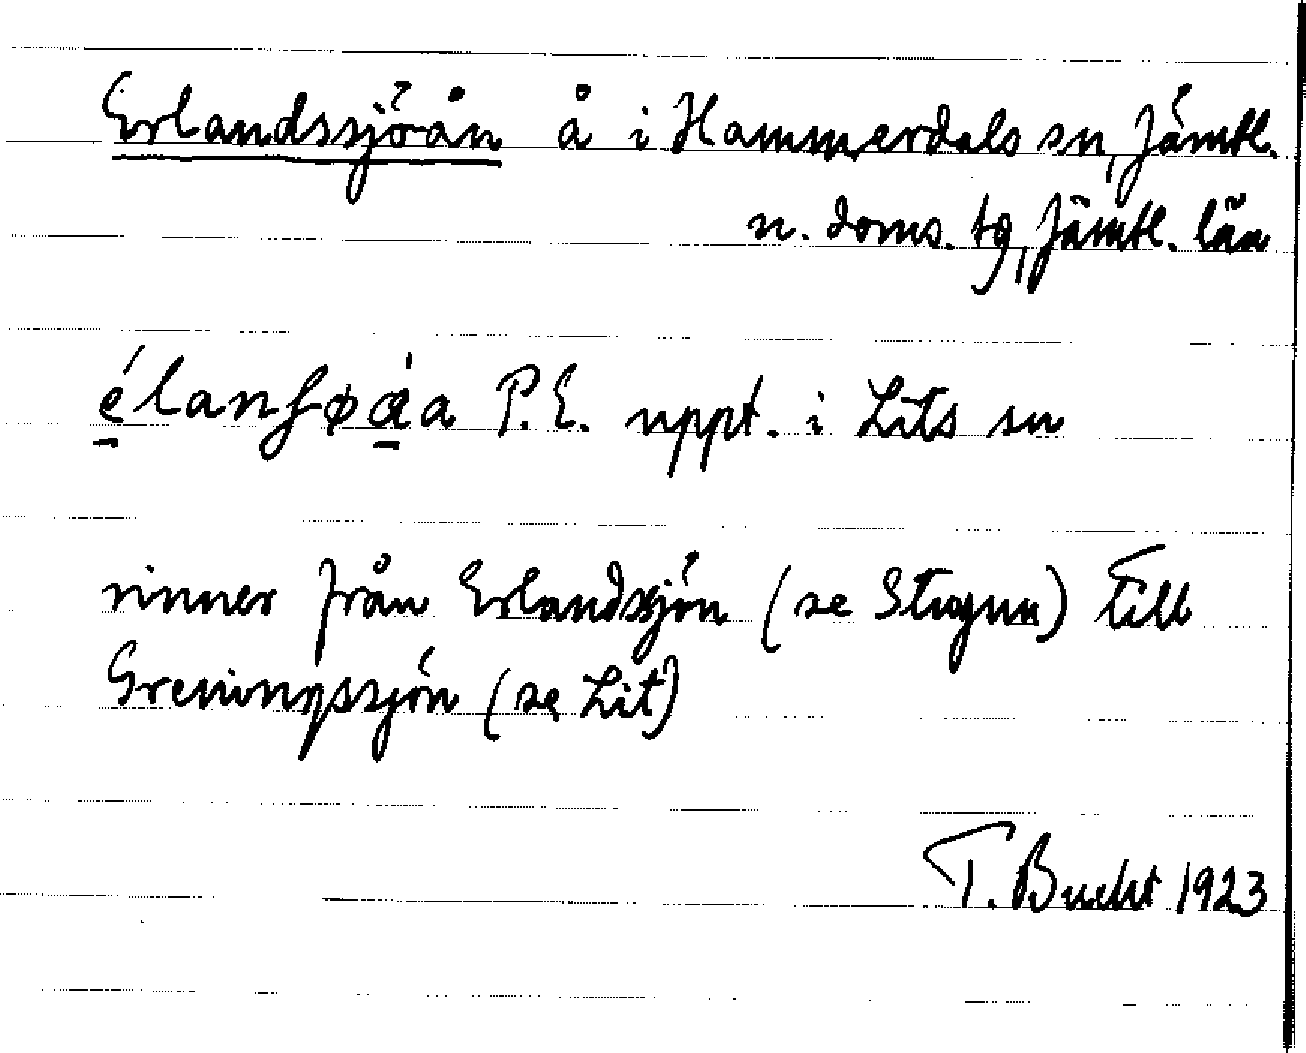 Erlandssjöån å i Hammerdals sn, Jämtl.
n. doms. tg, Jämtl. län
élanʃøáa P.E. uppt. i Lits sn
rinner från Erlandssjön (se Stugun) till
Greningssjön (se Lit)
T. Bucht 1923